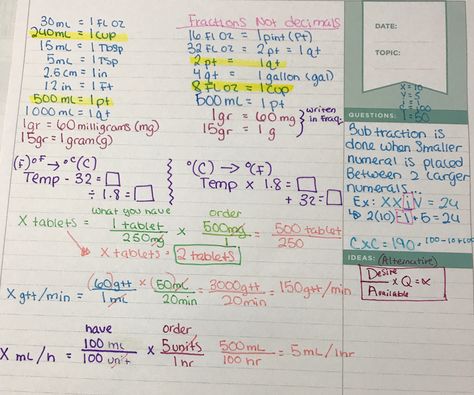 30 mL = 1 FL OZ
240mL = 1 cup
15 mL = 1 Tbsp
5mL = 1 Tsp
2.5 cm = 1 in
12 in = 1 Ft
500 mL = 1 pt
1000 mL = 1 qt
1gr = 60 milligrams (mg)
15gr = 1 gram (g)
Fractions Not decimals
16 FL OZ = 1 pint (Pt)
32 FL OZ = 2 pt = 1 qt
2 pt = 1 qt
4 qt = 1 gallon (gal)
8 FL OZ = 1 cup
500 mL = 1 pt
1gr = 60 mg
15gr = 1 g
written in frac.
(F)°F → °C (C)
Temp - 32 =
÷ 1.8 =
°(C) → °(F)
Temp x 1.8 =
+ 32 =
what you have
order
X tablets = 1 tablet / 250mg x 500mg / 1 = 500 tablet / 250
X tablets = 2 tablets
X gtt/min = (60)gtt / 1mL x (50)mL / 20min = 3000gtt / 20min = 150gtt/min
have
order
X mL/h = 100 mL / 100 unit x 5units / 1hr 500mL / 100 hr = 5mL/1hr
DATE:
TOPIC:
X = 10
V = 5
C = 100
QUESTIONS:
Subtraction is
done when Smaller
numeral is placed
Between 2 Larger
numerals...
Ex: XXIV = 24
CXC = 190
IDEAS: (Alternative)
Desire / Available x Q = x